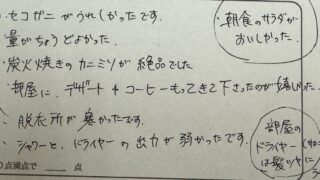 ・セコガニがうれしかったです。
・量がちょうどよかった。
・炭火焼きのカニミソが絶品でした
・部屋に、デザート+コーヒーもってきて下さったのが嬉しかった。
・脱衣所が寒かったです。
・シャワーと、ドライヤーの出力が弱かったです。
点満点で 点
・朝食のサラダが
おいしかった。
部屋の
ドライヤー
は髪が